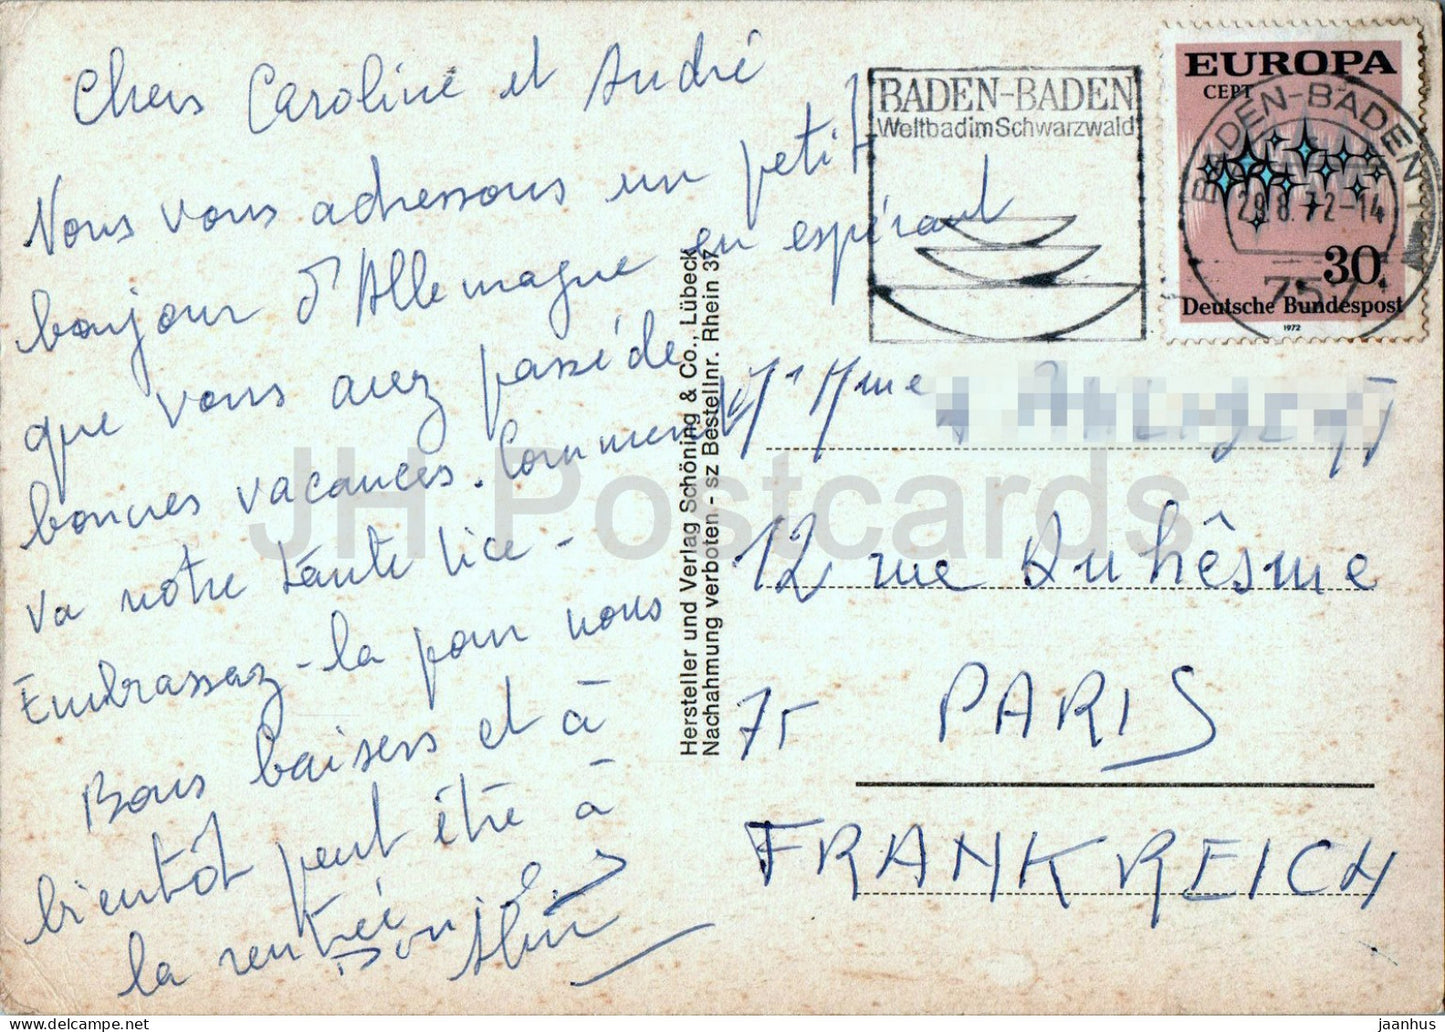 Chers Caroline et André
Nous vous adressons un petit
bonjour d'Allemagne en espérant
que vous avez passé de
bonnes vacances. Comment
va notre tante Lice -
Embrassez-la pour nous
Bons baisers et à
bientôt peut être à
la rentrée
BADEN-BADEN
Weltbad im Schwarzwald
EUROPA
CEPT
BADEN-BADEN 1
29.8.72-14
757
30
Deutsche Bundespost
1972
Hersteller und Verlag Schöning & Co., Lübeck
Nachahmung verboten. - sz Bestellnr. Rhein 37
Mr Mme
12 rue Duhêsme
75 PARIS
FRANKREICH
JH Postcards
delcampe.net
jaanhus